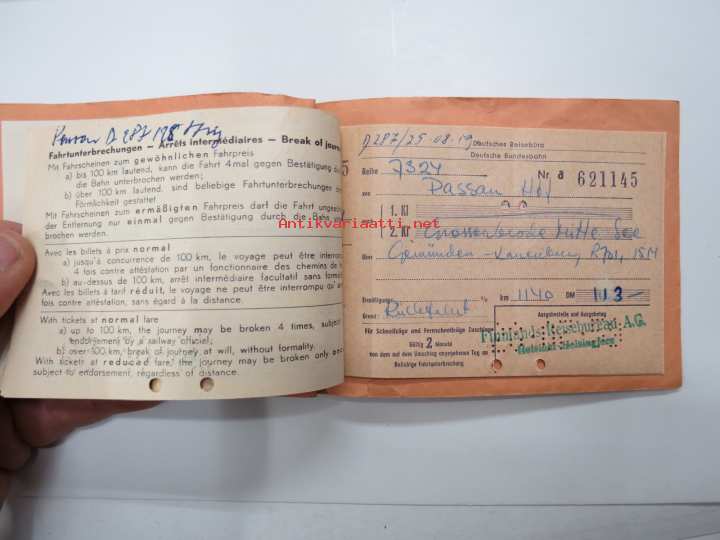 Passau D 287 198
Fahrtunterbrechungen – Arrêts intermédiaires – Break of jour
Mit Fahrscheinen zum gewöhnlichen Fahrpreis
a) bis 100 km lautend, kann die Fahrt 4mal gegen Bestätigung du
die Bahn unterbrochen werden;
b) über 100 km lautend, sind beliebige Fahrtunterbrechungen
Förmlichkeit gestattet
Mit Fahrscheinen zum ermäßigten Fahrpreis darf die Fahrt ungeac
der Entfernung nur einmal gegen Bestätigung durch die Bahn
brochen werden.
Avec les billets à prix normal
a) jusqu'à concurrence de 100 km, le voyage peut être interr
4 fois contre attestation par un fonctionnaire des chemins de
b) au-dessus de 100 km, arrêt intermédiaire facultatif sans form
Avec les billets à tarif réduit, le voyage ne peut être interrompu qu'
fois contre attestation, sans égard à la distance.
With tickets at normal fare
a) up to 100 km, the journey may be broken 4 times, subject
endorsement by a railway official;
b) over 100 km, break of journey at will, without formality.
With tickets at reduced fare, the journey may be broken only
subject to endorsement, regardless of distance.
D 287/25 -08- 19
Deutsches Reisebüro
Deutsche Bundesbahn
Reihe 7324 Nr a 621145
von Passau Hbf
1. Kl
2. Kl Grossenbrode Mitte See
über Gemünden - Lauenburg
Ermäßigung: % km 1140 DM 113-
Grund:
Für Schnellzüge und Fernschnellzüge Zuschläge
Gültig 2 Monate
von dem auf dem Umschlag angegebenen Tag an
Beliebige Fahrtunterbrechung
Ausgabestelle und Ausgabetag
Finnlands Reisebureau A.G.
Helsinki-Helsingfors
Antikvariaatti.net